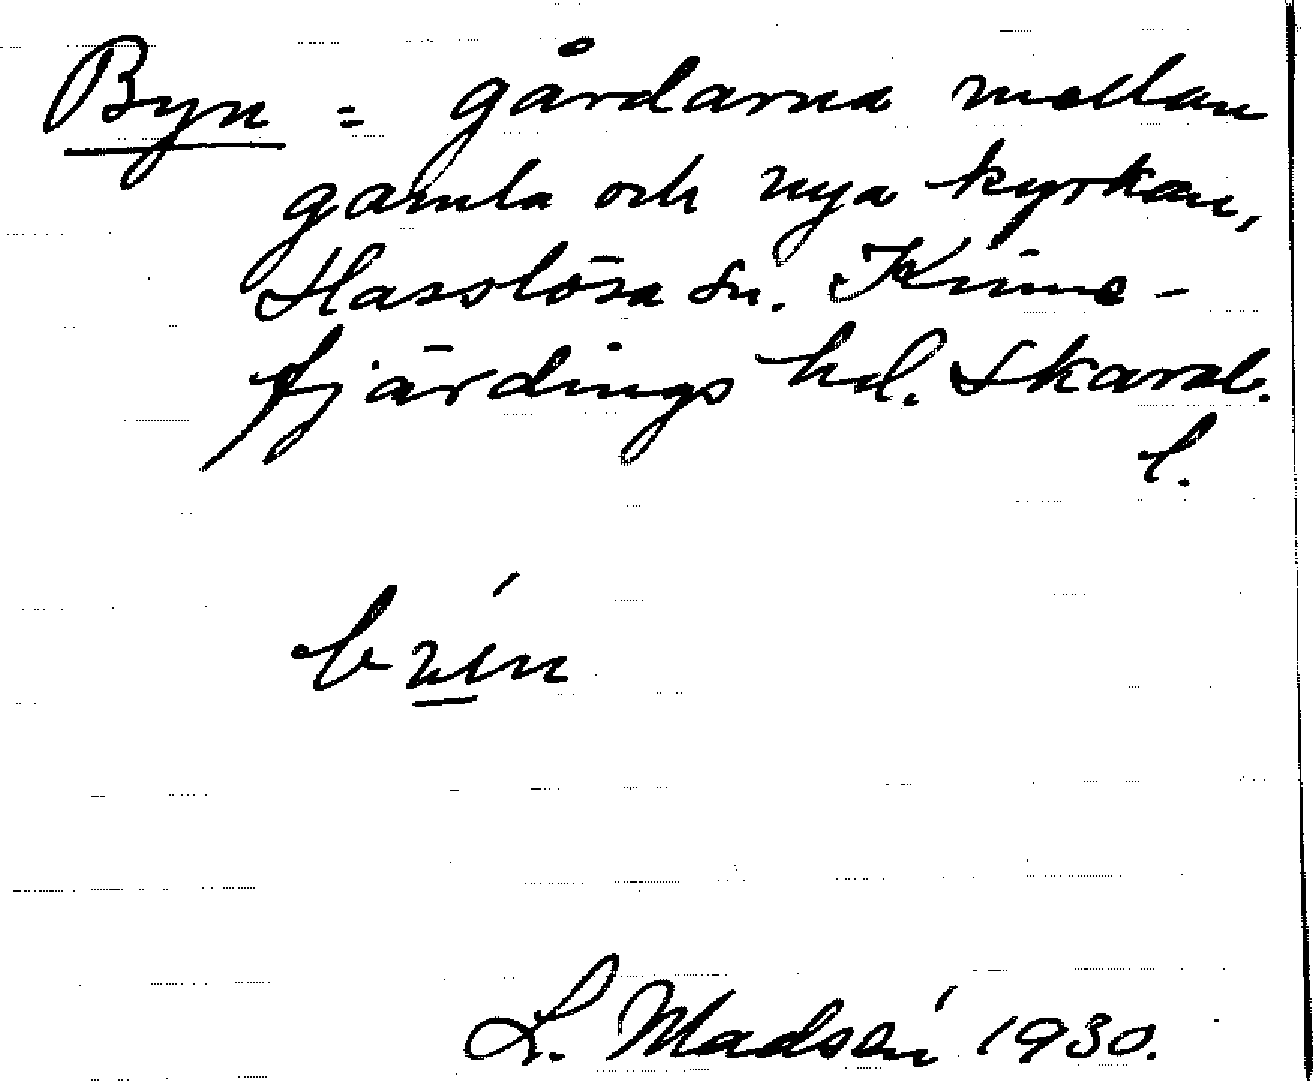 Byn = gårdarna mellan
gamla och nya kyrkan,
Hasslösa sn. Kinne-
fjärdings hd. Skarab.
l.
L. Madsén 1930.